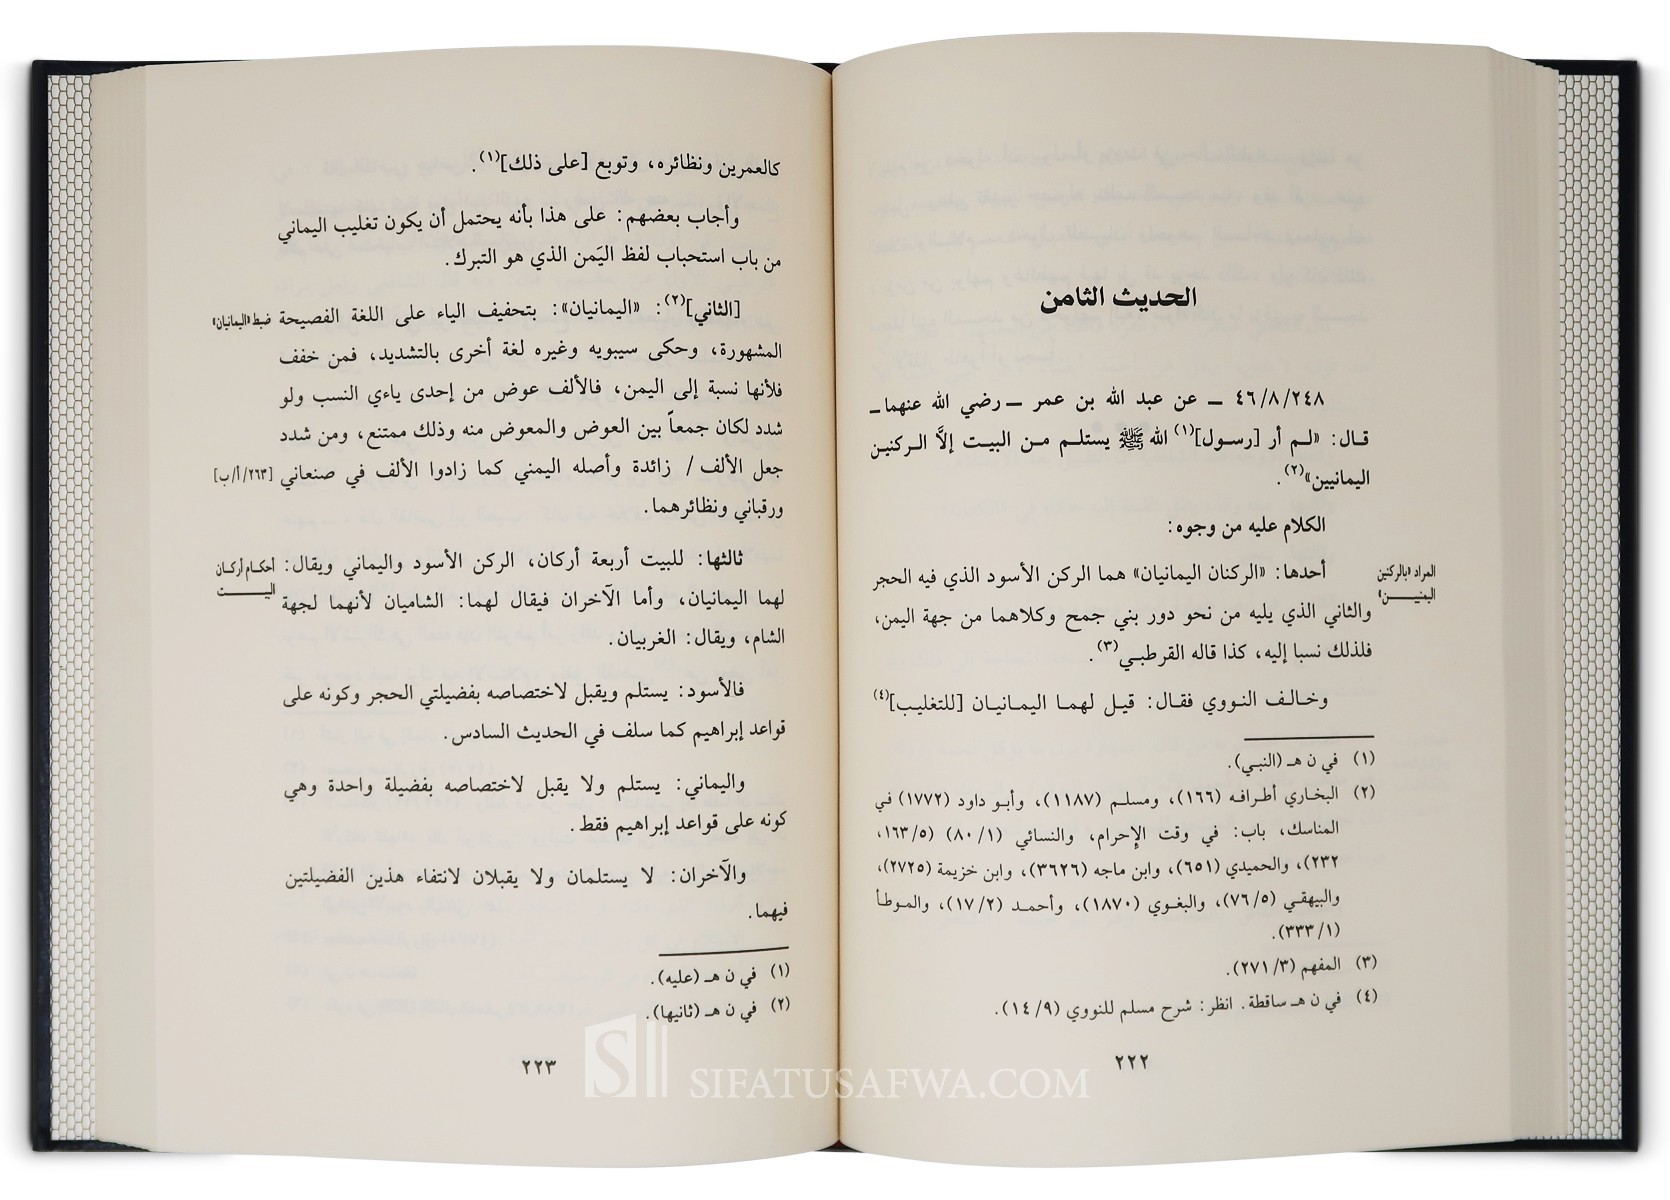 الحديث الثامن
٤٦/٨/٢٤٨ ــ عن عبد الله بن عمر ــ رضي الله عنهما ــ
قال: «لـم أر [رسـول]⁽¹⁾ الله ﷺ يستلـم مـن البيـت إلاَّ الـركنيـن
اليمانيين»⁽²⁾.
الكلام عليه من وجوه:
المراد «بالركنين
اليمنيـــن»
أحدها: «الركنان اليمانيان» هما الركن الأسود الذي فيه الحجر
والثاني الذي يليه من نحو دور بني جمح وكلاهما من جهة اليمن،
فلذلك نسبا إليه، كذا قاله القرطبـي⁽³⁾.
وخـالـف النـووي فقـال: قيـل لهمـا اليمـانيـان [للتغليـب]⁽⁴⁾
(١) في ن هـ (النبي).
(٢) البخـاري أطـرافـه (١٦٦)، ومسلـم (١١٨٧)، وأبـو داود (١٧٧٢) فـي
المناسك، باب: في وقت الإِحرام، والنسائي (٨٠/١) (١٦٣/٥،
٢٣٢)، والحميدي (٦٥١)، وابن ماجه (٣٦٢٦)، وابن خزيمة (٢٧٢٥)،
والبيهقـي (٧٦/٥)، والبغـوي (١٨٧٠)، وأحمـد (١٧/٢)، والمـوطـأ
(٣٣٣/١).
(٣) المفهم (٢٧١/٣).
(٤) في ن هـ ساقطة. انظر: شرح مسلم للنووي (١٤/٩).
٢٢٢
كالعمرين ونظائره، وتوبع [على ذلك]⁽¹⁾.
وأجاب بعضهم: على هذا بأنه يحتمل أن يكون تغليب اليماني
من باب استحباب لفظ اليَمن الذي هو التبرك.
[الثاني]⁽²⁾: «اليمانيان»: بتحفيف الياء على اللغة الفصيحة
ضبط «اليمانيان»
المشهورة، وحكى سيبويه وغيره لغة أخرى بالتشديد، فمن خفف
فلأنها نسبة إلى اليمن، فالألف عوض من إحدى ياءي النسب ولو
شدد لكان جمعاً بين العوض والمعوض منه وذلك ممتنع، ومن شدد
جعل الألف/ زائدة وأصله اليمني كما زادوا الألف في صنعاني
[٢٦٣/أ/ب]
ورقباني ونظائرهما.
ثالثها: للبيت أربعة أركان، الركن الأسود واليماني ويقال:
أحكام أركان
البيـــــت
لهما اليمانيان، وأما الآخران فيقال لهما: الشاميان لأنهما لجهة
الشام، ويقال: الغربيان.
فالأسود: يستلم ويقبل لاختصاصه بفضيلتي الحجر وكونه على
قواعد إبراهيم كما سلف في الحديث السادس.
واليماني: يستلم ولا يقبل لاختصاصه بفضيلة واحدة وهي
كونه على قواعد إبراهيم فقط.
والآخران: لا يستلمان ولا يقبلان لانتفاء هذين الفضيلتين
فيهما.
(١) في ن هـ (عليه).
(٢) في ن هـ (ثانيها).
٢٢٣
SIFATUSAFWA.COM